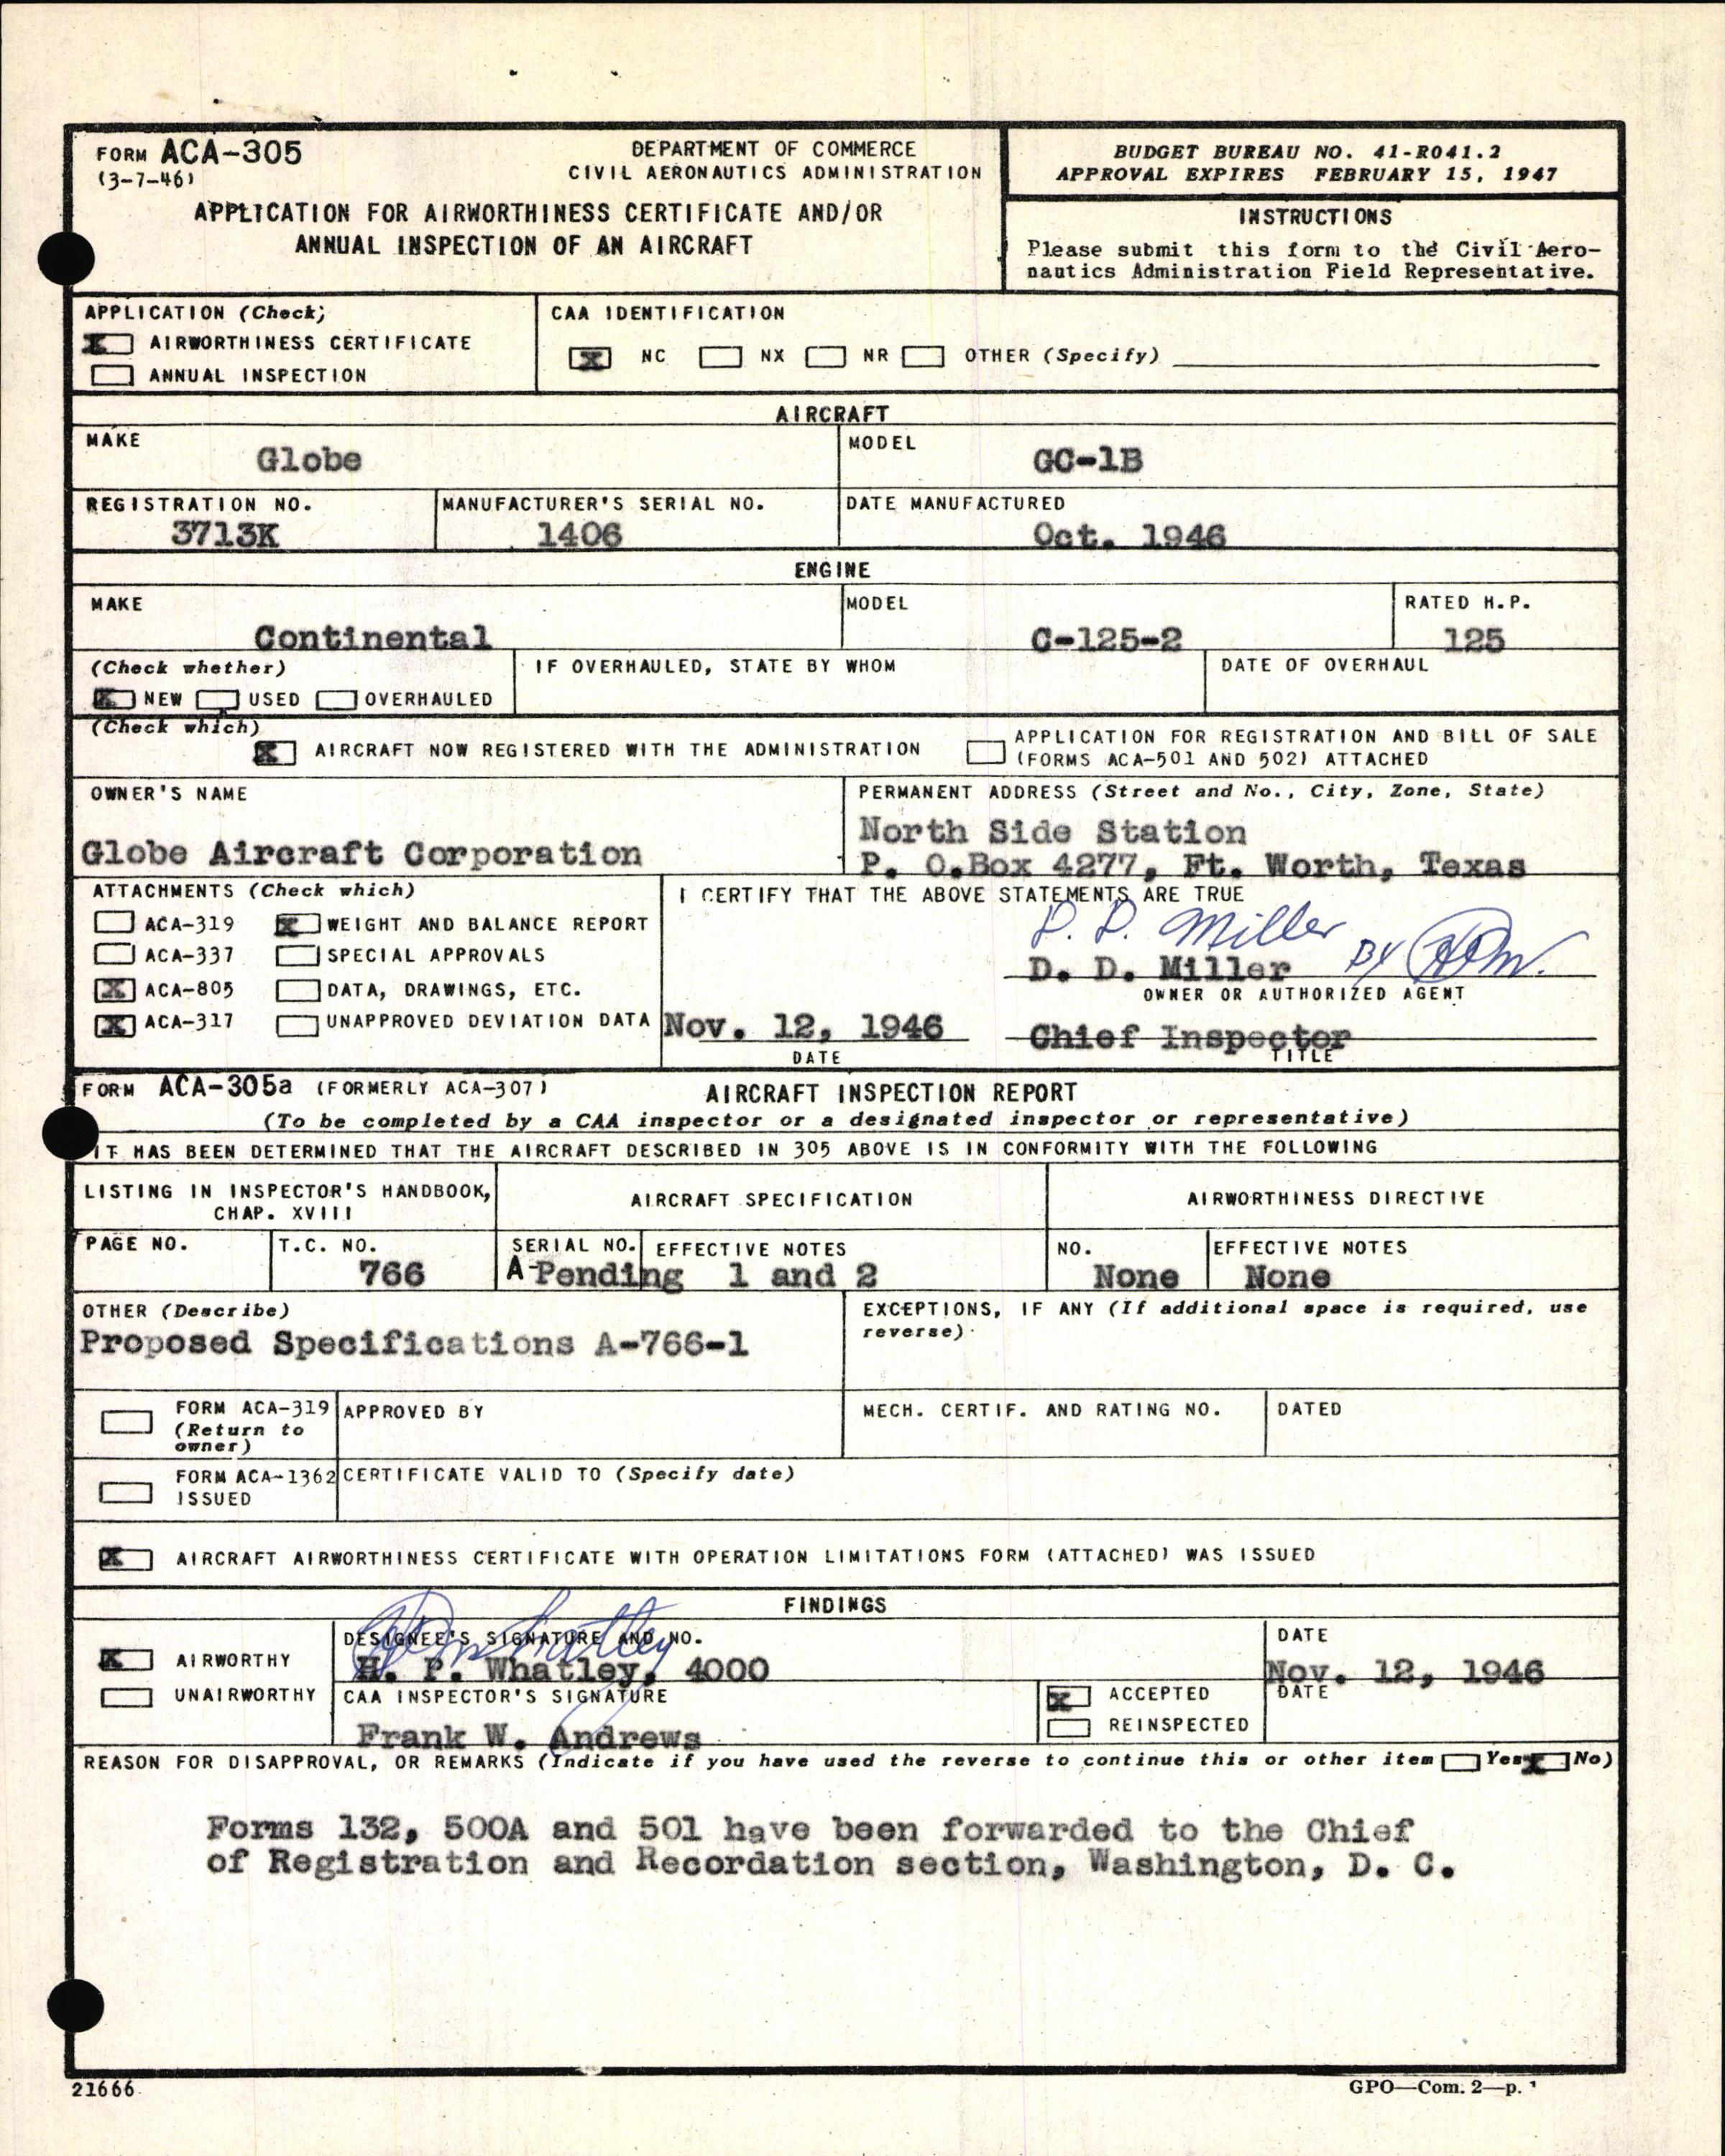 FORM ACA-305
(3-7-46)
DEPARTMENT OF COMMERCE
CIVIL AERONAUTICS ADMINISTRATION
APPLICATION FOR AIRWORTHINESS CERTIFICATE AND/OR
ANNUAL INSPECTION OF AN AIRCRAFT
BUDGET BUREAU NO. 41-R041.2
APPROVAL EXPIRES FEBRUARY 15, 1947
INSTRUCTIONS
Please submit this form to the Civil Aero-
nautics Administration Field Representative.
APPLICATION (Check)
X AIRWORTHINESS CERTIFICATE
ANNUAL INSPECTION
CAA IDENTIFICATION
X NC NX NR OTHER (Specify)
AIRCRAFT
MAKE
Globe
MODEL
GC-1B
REGISTRATION NO.
3713K
MANUFACTURER'S SERIAL NO.
1406
DATE MANUFACTURED
Oct. 1946
ENGINE
MAKE
Continental
MODEL
C-125-2
RATED H.P.
125
(Check whether)
X NEW USED OVERHAULED
IF OVERHAULED, STATE BY WHOM
DATE OF OVERHAUL
(Check which)
X AIRCRAFT NOW REGISTERED WITH THE ADMINISTRATION
APPLICATION FOR REGISTRATION AND BILL OF SALE
(FORMS ACA-501 AND 502) ATTACHED
OWNER'S NAME
Globe Aircraft Corporation
PERMANENT ADDRESS (Street and No., City, Zone, State)
North Side Station
P. O.Box 4277, Ft. Worth, Texas
ATTACHMENTS (Check which)
ACA-319 X WEIGHT AND BALANCE REPORT
ACA-337 SPECIAL APPROVALS
X ACA-805 DATA, DRAWINGS, ETC.
X ACA-317 UNAPPROVED DEVIATION DATA
I CERTIFY THAT THE ABOVE STATEMENTS ARE TRUE
D. D. Miller
D. D. Miller By
OWNER OR AUTHORIZED AGENT
Nov. 12, 1946
DATE
Chief Inspector
TITLE
FORM ACA-305a (FORMERLY ACA-307) AIRCRAFT INSPECTION REPORT
(To be completed by a CAA inspector or a designated inspector or representative)
IT HAS BEEN DETERMINED THAT THE AIRCRAFT DESCRIBED IN 305 ABOVE IS IN CONFORMITY WITH THE FOLLOWING
LISTING IN INSPECTOR'S HANDBOOK,
CHAP. XVIII
AIRCRAFT SPECIFICATION
AIRWORTHINESS DIRECTIVE
PAGE NO.
T.C. NO.
766
SERIAL NO.
A-Pending
EFFECTIVE NOTES
1 and 2
NO.
None
EFFECTIVE NOTES
None
OTHER (Describe)
Proposed Specifications A-766-1
EXCEPTIONS, IF ANY (If additional space is required, use
reverse)
FORM ACA-319
(Return to
owner)
APPROVED BY
MECH. CERTIF. AND RATING NO.
DATED
FORM ACA-1362
ISSUED
CERTIFICATE VALID TO (Specify date)
X AIRCRAFT AIRWORTHINESS CERTIFICATE WITH OPERATION LIMITATIONS FORM (ATTACHED) WAS ISSUED
FINDINGS
X AIRWORTHY
UNAIRWORTHY
DESIGNEE'S SIGNATURE AND NO.
H. P. Whatley, 4000
DATE
Nov. 12, 1946
CAA INSPECTOR'S SIGNATURE
Frank W. Andrews
X ACCEPTED
REINSPECTED
DATE
REASON FOR DISAPPROVAL, OR REMARKS (Indicate if you have used the reverse to continue this or other item Yes X No)
Forms 132, 500A and 501 have been forwarded to the Chief
of Registration and Recordation section, Washington, D. C.
21666
GPO—Com. 2—p.